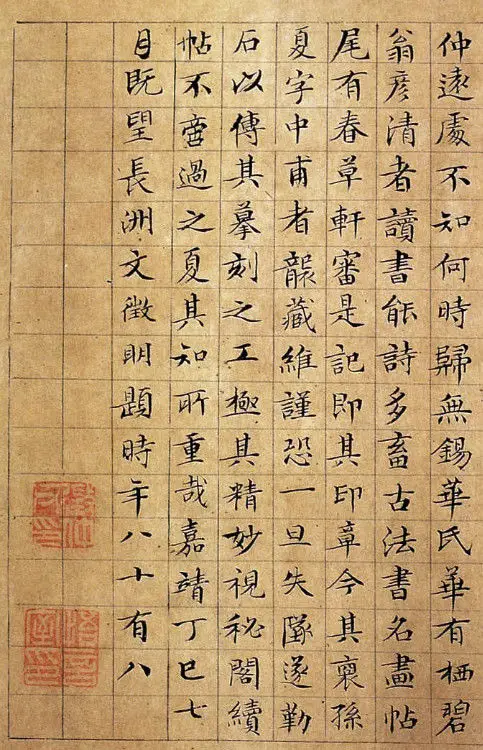 仲遠處不知何時歸無錫華氏華有栖碧
翁彦清者讀書能詩多畜古法書名畫帖
尾有春草軒審是記即其印章今其裔孫
夏字中甫者襲藏維謹恐一旦失墜遂勒
石以傳其摹刻之工極其精妙視秘閣續
帖不啻過之夏其知所重哉嘉靖丁巳七
月既望長洲文徵明題時年八十有八
悟言室印